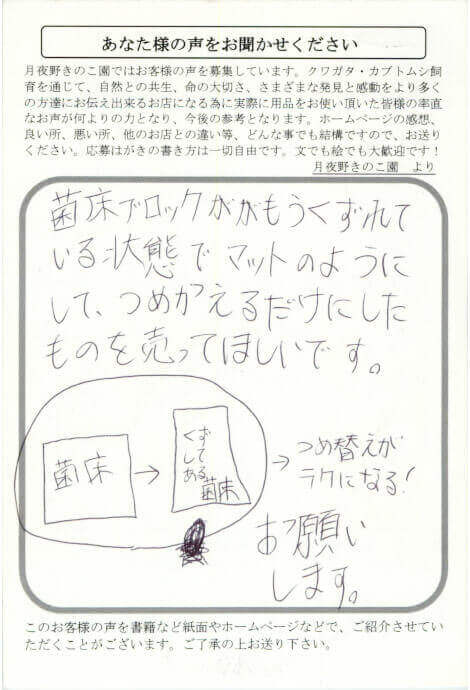 あなた様の声をお聞かせください
月夜野きのこ園ではお客様の声を募集しています。クワガタ・カブトムシ飼
育を通じて、自然との共生、命の大切さ、さまざまな発見と感動をより多く
の方達にお伝え出来るお店になる為に実際に用品をお使い頂いた皆様の率直
なお声が何よりの力となり、今後の参考となります。ホームページの感想、
良い所、悪い所、他のお店との違い等、どんな事でも結構ですので、お送り
ください。応募はがきの書き方は一切自由です。文でも絵でも大歓迎です！
月夜野きのこ園　より
菌床ブロックががもうくずれて
いる状態でマットのように
して、つめかえるだけにした
ものを売ってほしいです。
菌床
→
くずしてある
菌床
→
つめ替えが
ラクになる!
お願い
します。
このお客様の声を書籍など紙面やホームページなどで、ご紹介させてい
ただくことがございます。ご了承の上お送り下さい。